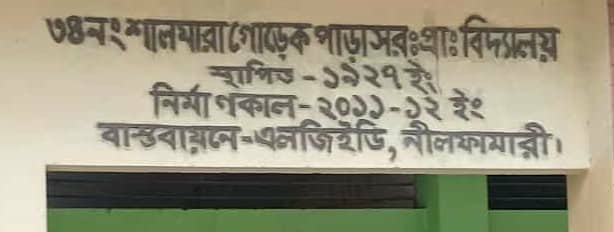 ৩৪নং শালমারা গোড়েক পাড়া সরঃপ্রাঃ বিদ্যালয়
স্থাপিত - ১৯২৭ ইং
নির্মাণকাল - ২০১১-১২ ইং
বাস্তবায়নে - এলজিইডি, নীলফামারী।